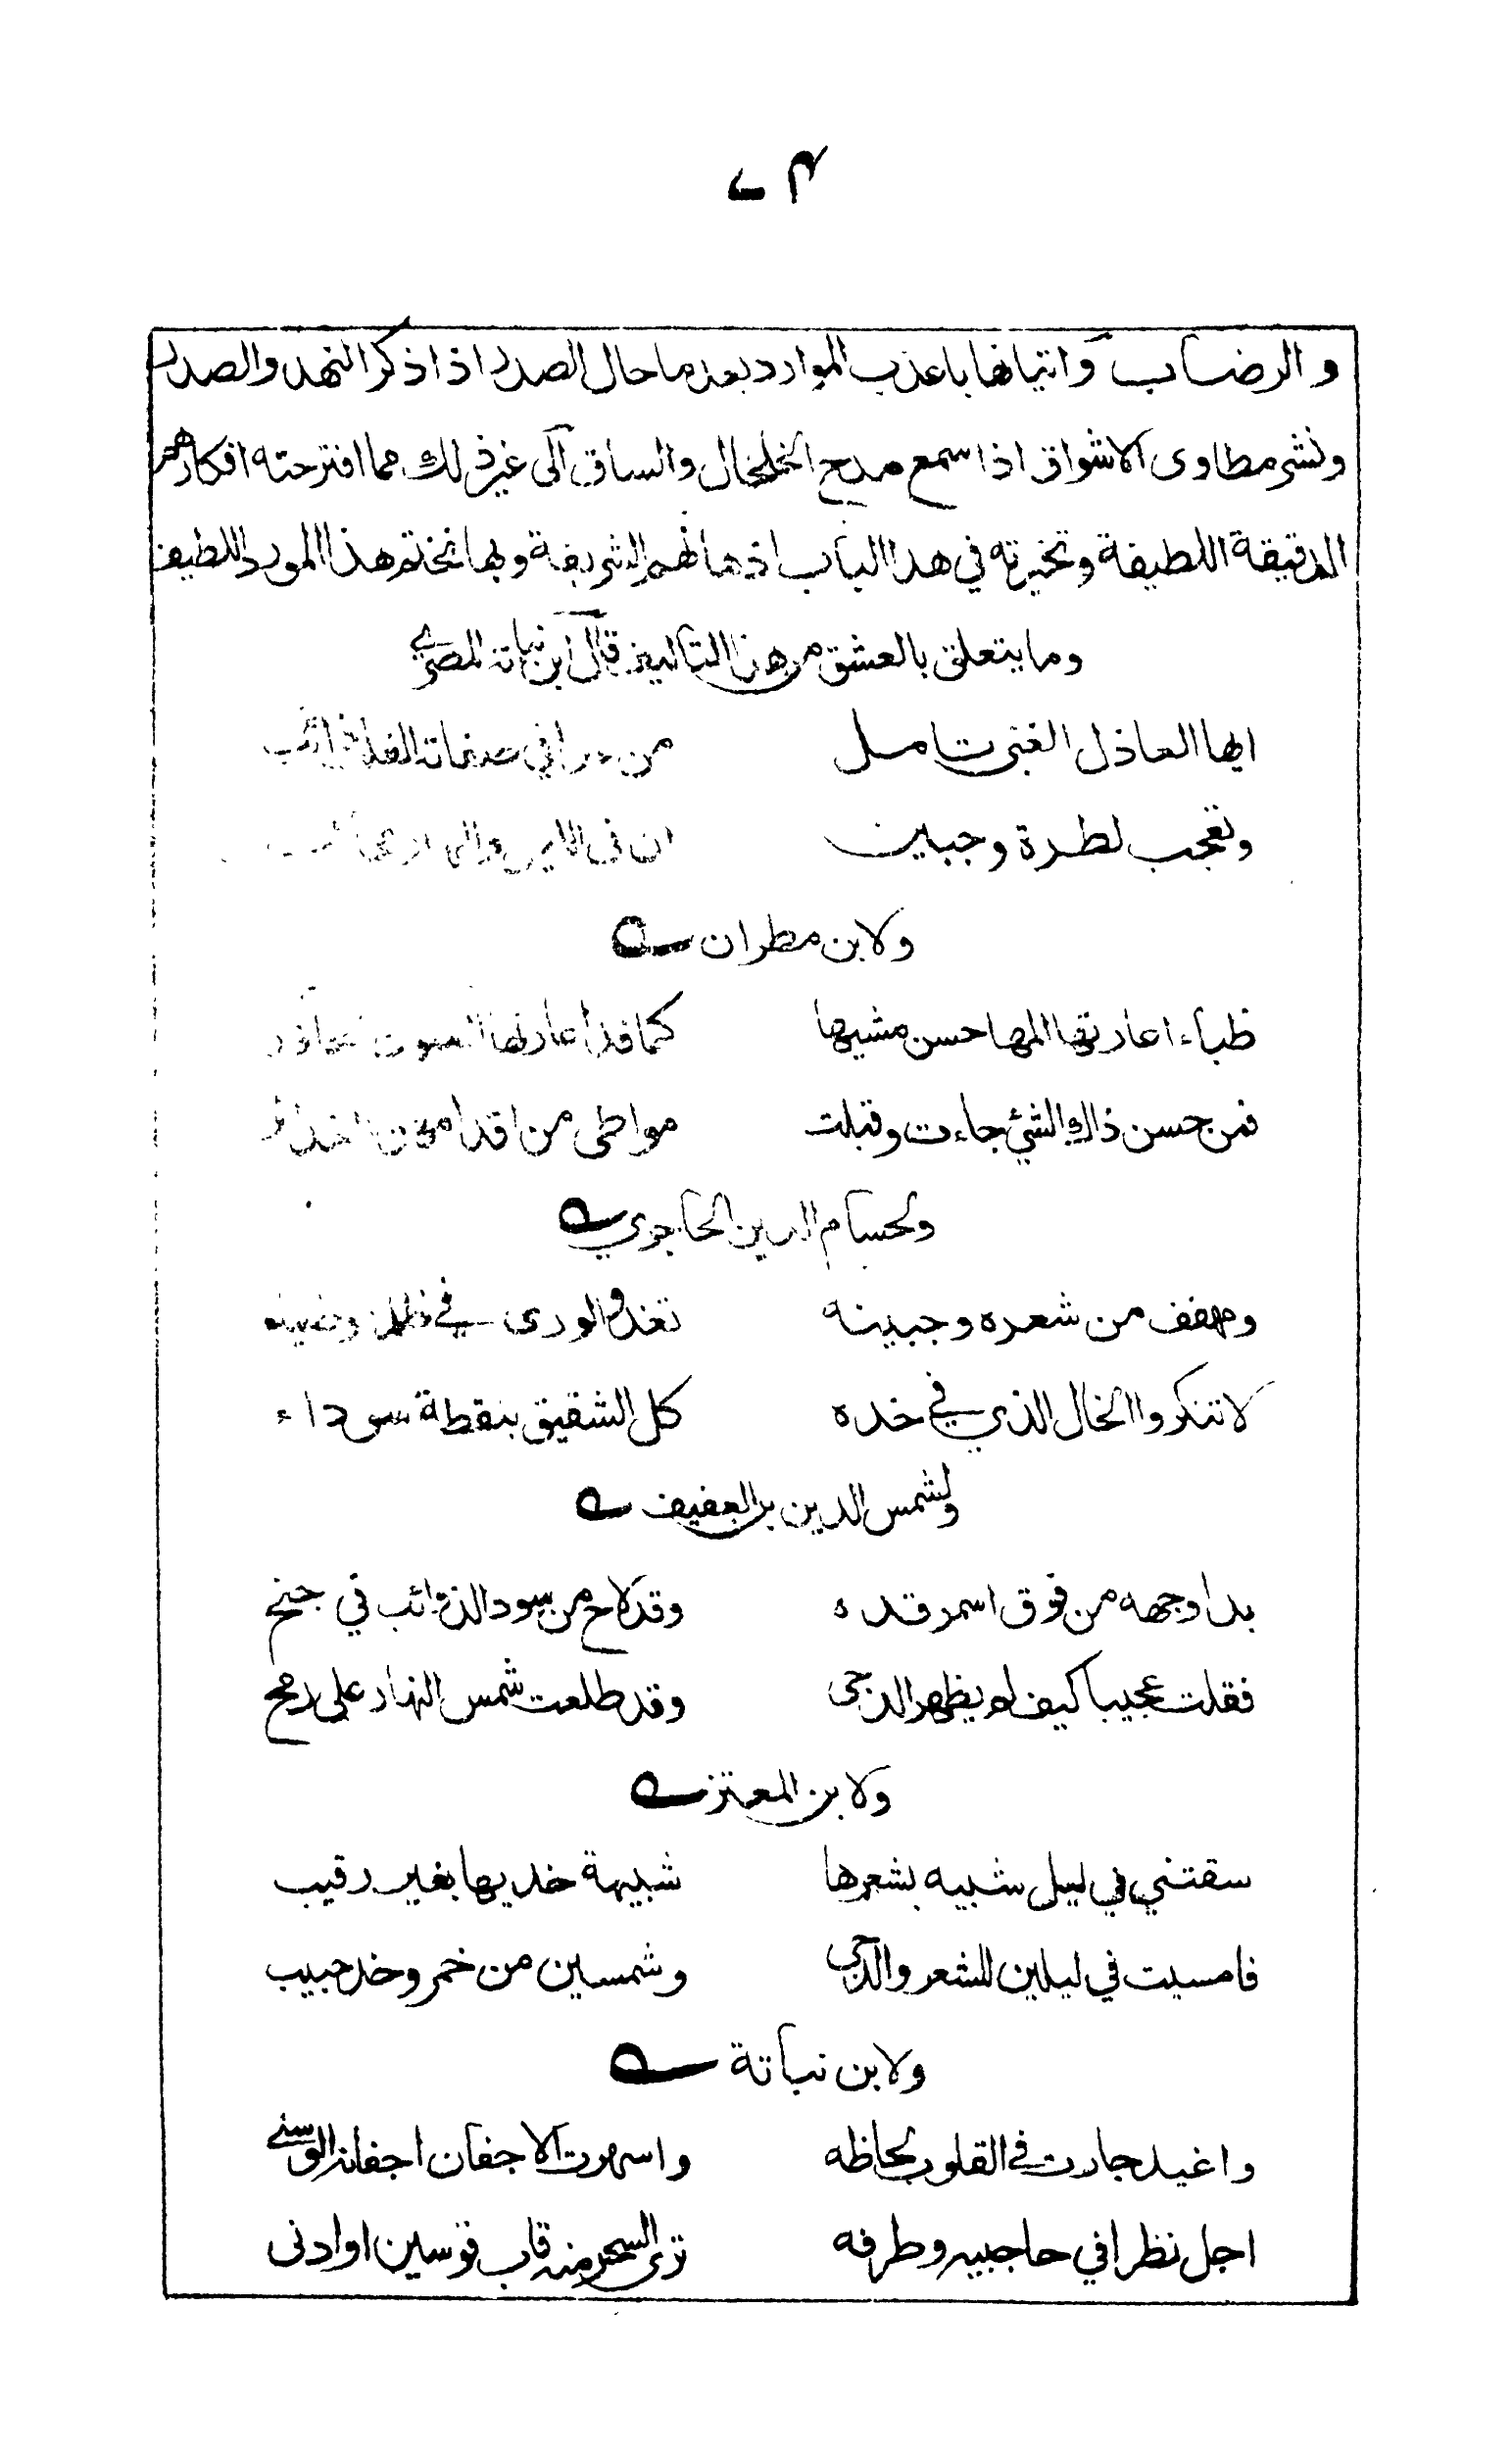 والرضاب واتيانها باعذب الموارد بعد ما حال الصدر اذا ذكر النهد والصدر
ونشر مطاوى الاشواق اذا سمع مدح الخلخال والساق الى غير ذلك مما اقترحته افكارهم
الدقيقة اللطيفة وتخيرته في هذا الباب اذهانهم الشريفة وبها نختم هذا المورد اللطيف
وما يتعلق بالعشق من هذا التاليف قال ابن نباتة المصري
ايها العاذل الغبى تامل من غدا في صفاته القلب ذائب
وتعجب لطرة وجبين ان في الليل والنهار عجائب
ولابن مطران
ظباء اعارتها المها حسن مشيها كما قد اعارتها العيون الجآذر
فمن حسن ذاك المشي جاءت وقبلت مواطى من اقدامهن
ولحسام الدين الحاجري
ومهفهف من شعره وجبينه تغدو الورى في ظلمة وضياء
لا تنكروا الخال الذي في خده كل الشقيق بنقطة سوداء
ولشمس الدين بن العفيف
بدا وجهه من فوق اسمر قده وقد لاح من سود الذوائب في جنح
فقلت عجيبا كيف لم يظهر الدجى وقد طلعت شمس النهار على رمح
ولابن المعتز
سقتني في ليل شبيه بشعرها شبيهة خديها بغير رقيب
فامسيت في ليلين للشعر والدجى وشمسين من خمر وخد حبيب
ولابن نباتة
واغيد جارت في القلوب لحاظه واسهرت الاجفان اجفانه الوسنى
اجل نظرا في حاجبيه وطرفه ترى السحر منه قاب قوسين او ادنى